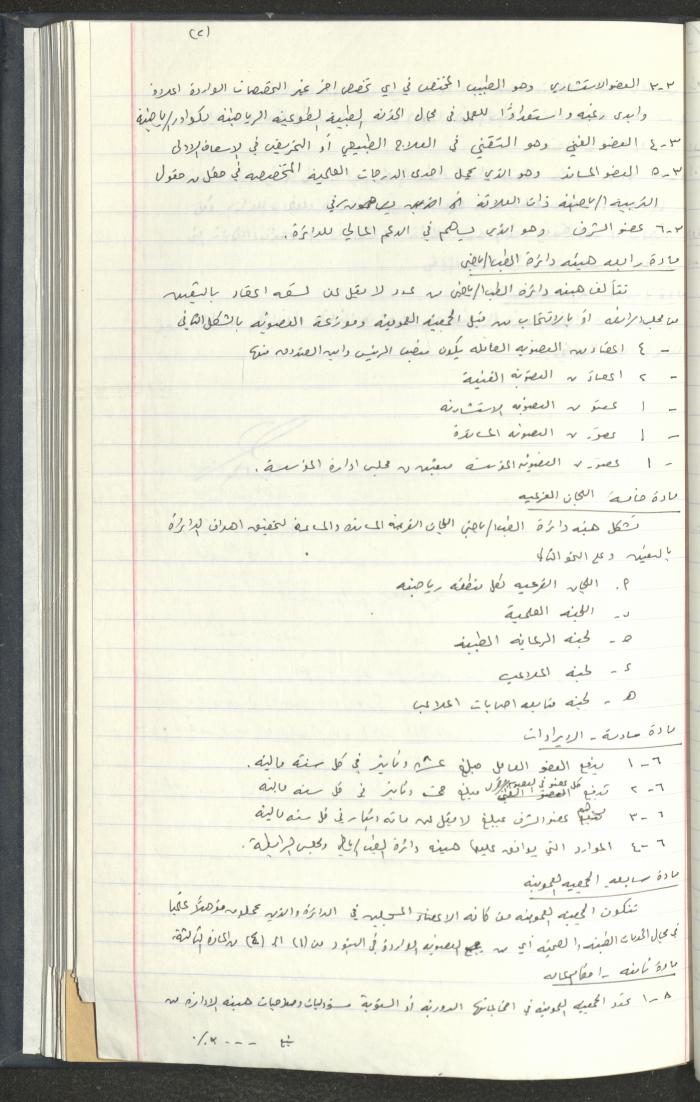 (٢)
٣-٣ العضو الاستشاري وهو الطبيب المختص في اي تخصص اخر غير التخصصات الواردة اعلاه
وابدى رغبة واستعدادًا للعمل في مجال الخدمة الطبية الطوعية الرياضية للكوادر الرياضية
٣-٤ العضو الفني وهو التقني في العلاج الطبيعي أو التمريض في الاسعاف الاولي
٣-٥ العضو المساند وهو الذي يحمل احدى الدرجات العلمية المتخصصة في حقل من حقول
التربية الرياضية ذات العلاقة
٣-٦ عضو الشرف وهو الذي يساهم في الدعم المالي للدائرة.
مادة رابعه هيئه دائرة الطب الرياضي
تتألف هيئه دائرة الطب الرياضي من عدد لا يقل عن تسعه اعضاء بالتعيين
من مجلس الرابطه أو بالانتخاب من قبل الجمعية العمومية وموزعة العضوية بالشكل التالي
- ٤ اعضاء من العضوية العامله يكون منصب الرئيس وامين الصندوق منها
- ٢ اعضاء من العضوية الفنية
- ١ عضو من العضويه الاستشاريه
- ١ عضو من العضويه المساندة
- ١ عضو من العضوية المؤسسة معين من مجلس ادارة المؤسسة.
مادة خامسة اللجان الفرعيه
تشكل هيئه دائرة الطب الرياضي اللجان الفرعية المساندة والمساعدة لتحقيق اهداف الدائرة
بالتعيين وعلى النحو التالي
أ. اللجان الفرعيه لكل منطقه رياضيه
ب- اللجنه العلمية
ج- لجنه الرعايه الطبية
د- لجنه الملاعب
هـ- لجنه متابعه اصابات الملاعب
مادة سادسة - الايرادات
٦-١ يدفع العضو العامل مبلغ عشره دنانير في كل سنة ماليه.
٦-٢ يدفع كل عضو في العضوية مبلغ خمسة دنانير في كل سنه ماليه
٦-٣ يساهم عضو الشرف بمبلغ لا يقل عن مائه دينار في كل سنه ماليه
٦-٤ الموارد التي يوافق عليها هيئه دائرة الطب الرياضي ومجلس الرابطة.
مادة سابعه الجمعيه العموميه
تتكون الجمعيه العموميه من كافه الاعضاء المسجلين في الدائرة والذين يحملون مؤهلاً علمياً
في مجال الخدمات الطبيه والصحيه أي من العضويه الواردة في البنود من (١) الى (٤) من المادة الثالثة
مادة ثامنه - احكام عامه
٨-١ تحدد الجمعيه العموميه في اجتماعاتها الدورية أو السنوية مسؤوليات وصلاحيات هيئه الادارة من
يتبع --- ٣/.